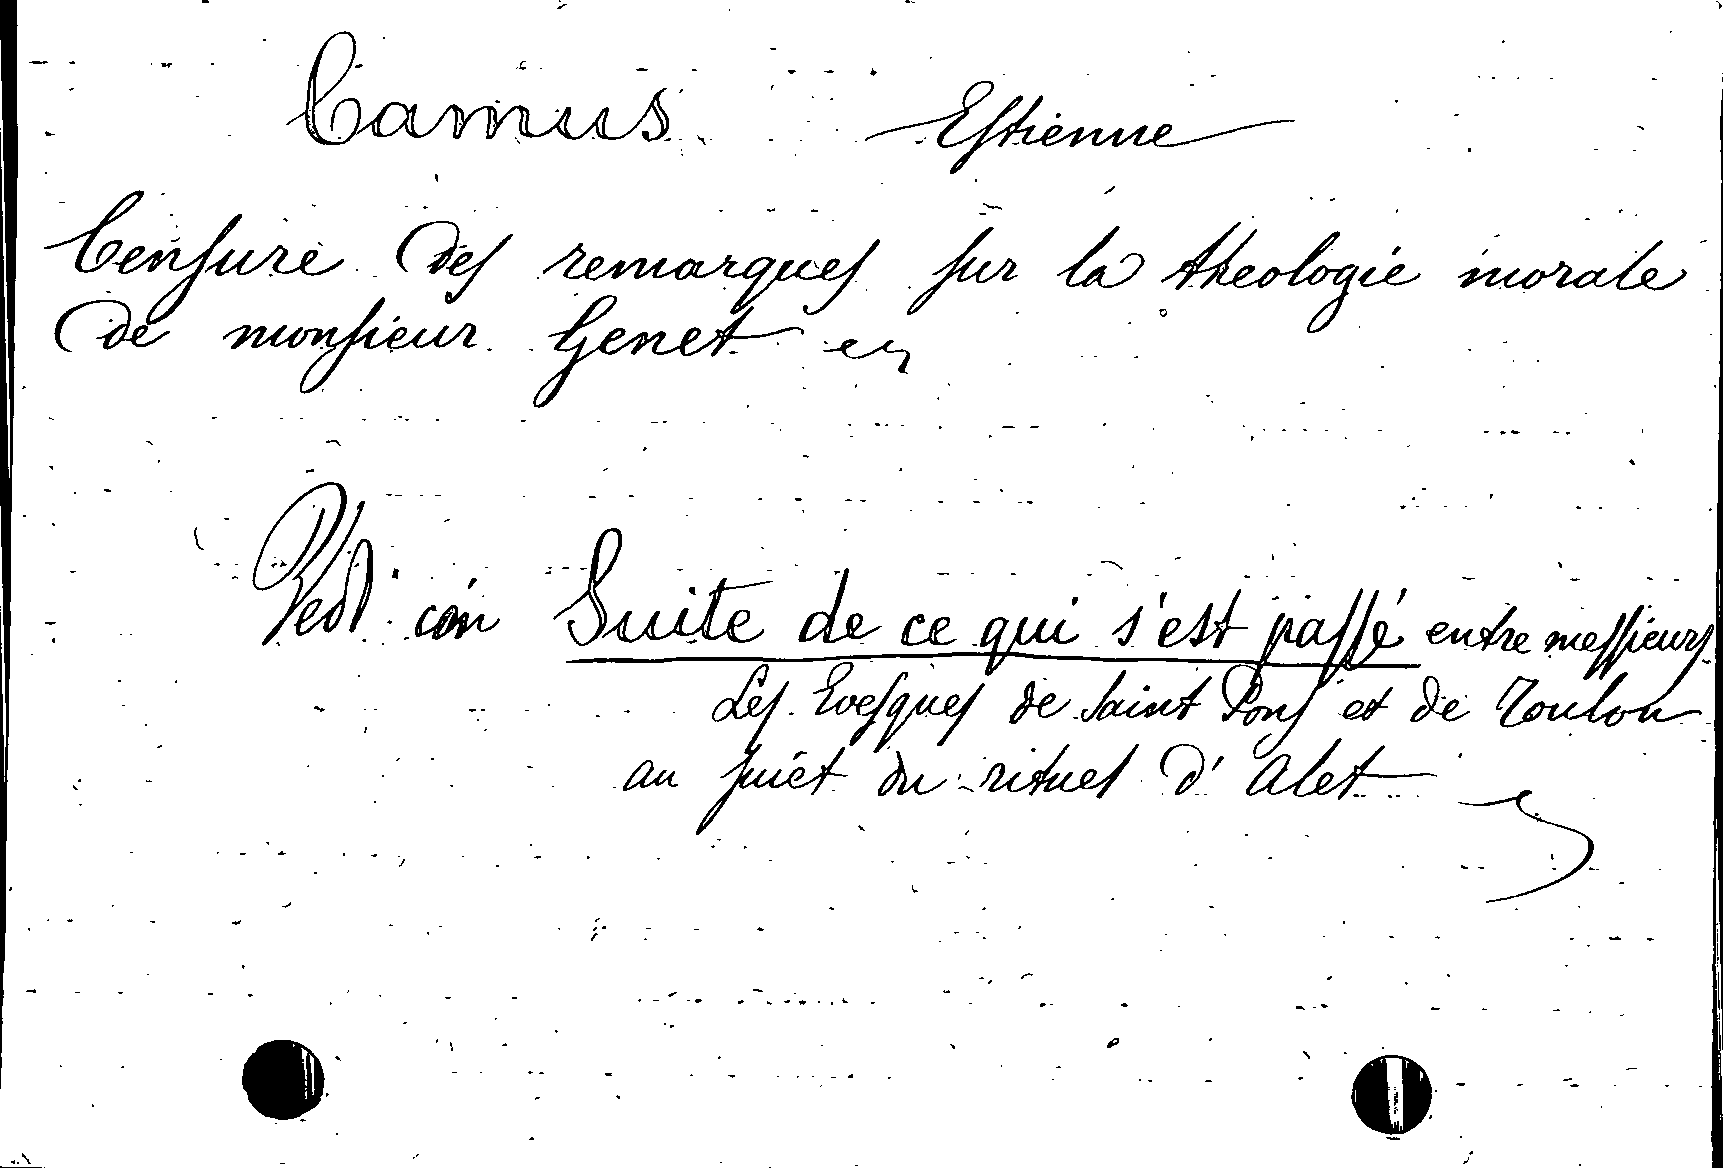 Camus Estienne
Censure des remarques sur la theologie morale
de monsieur Genet
Vedi con Suite de ce qui s'est passé entre messieurs
Les Evesques de Saint Pons et de Toulon
au suiet du rituel d'Alet